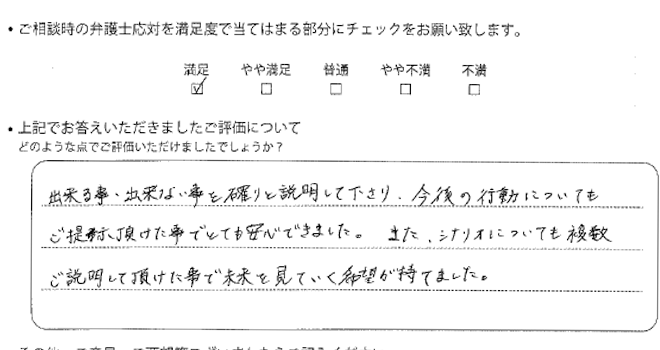 • ご相談時の弁護士応対を満足度で当てはまる部分にチェックをお願い致します。
満足 やや満足 普通 やや不満 不満
☑ □ □ □ □
• 上記でお答えいただきましたご評価について
どのような点でご評価いただけましたでしょうか？
出来る事・出来ない事を確りと説明して下さり、今後の行動についても
ご提示頂けた事でとても安心できました。 また、シナリオについても複数
ご説明して頂けた事で未来を見ていく希望が持てました。